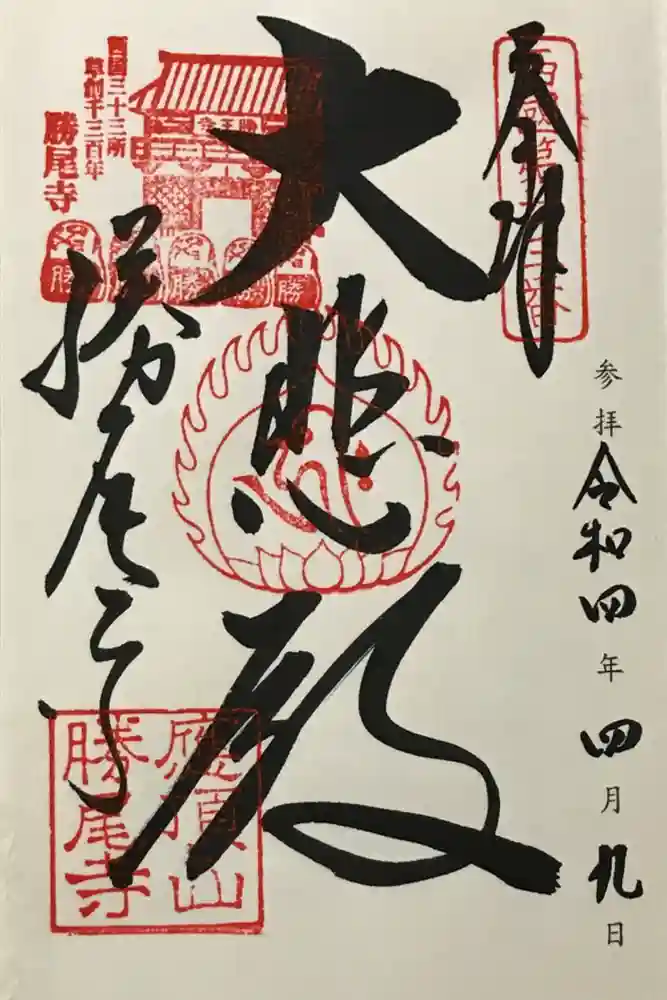 奉拝
西国第二十三番
参拝 令和四年 四月九日
大悲殿
西国三十三所
草創千三百年
勝尾寺
勝
勝
勝
勝
勝
勝尾寺
應頂山
勝尾寺